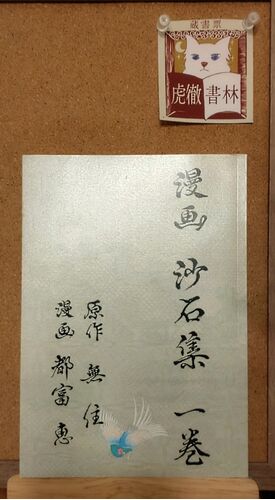 蔵書票
虎徹書林
漫画 沙石集 一巻
原作 無住
漫画 都富 恵